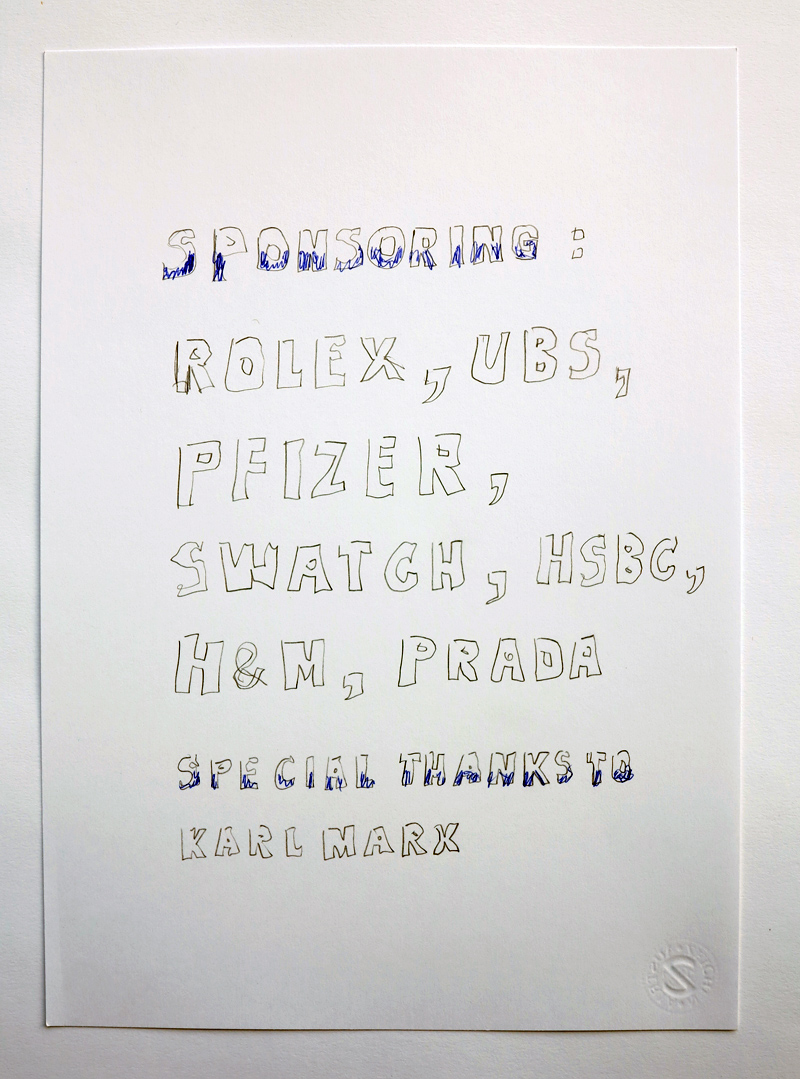 SPONSORING :
ROLEX, UBS,
PFIZER,
SWATCH, HSBC,
H&M, PRADA
SPECIAL THANKS TO
KARL MARX